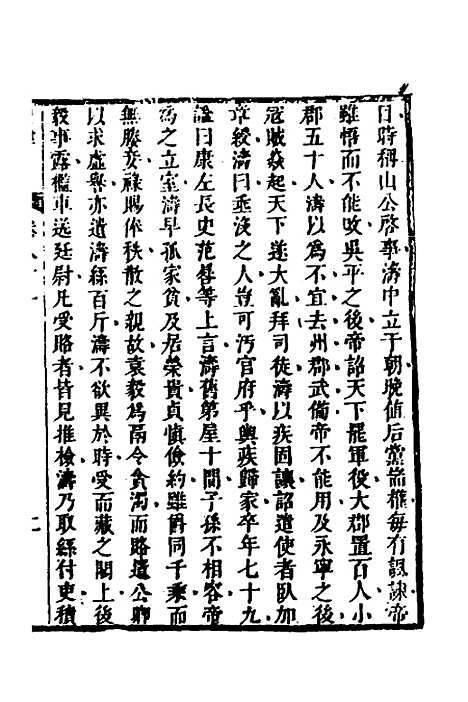 日時稱山公啓事濤中立于朝晚值后黨專權每有諷諫帝
雖悟而不能改吳平之後帝詔天下罷軍役大郡置百人小
郡五十人濤以為不宜去州郡武備帝不能用及永寧之後
寇賊猋起天下遂大亂拜司徒濤以疾固讓詔遣使者臥加
章綬濤曰垂沒之人豈可汚官府乎輿疾歸家卒年七十九
諡曰康左長史范晷等上言濤舊第屋十間子孫不相容帝
為之立室濤早孤家貧及居榮貴貞慎儉約雖爵同千乘而
無勝妾祿賜俸秩散之親故袁毅為鬲令貪濁而賂遺公卿
以求虛譽亦遺濤絲百斤濤不欲異於時受而藏之閣上後
毅事露檻車送廷尉凡受賂者皆見推檢濤乃取絲付吏積